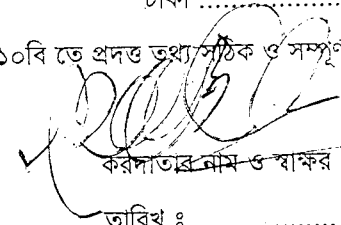 টাকা ................
১০বি তে প্রদত্ত তথ্য সঠিক ও সম্পূর্ণ
করদাতার নাম ও স্বাক্ষর
তারিখ ঃ ...........